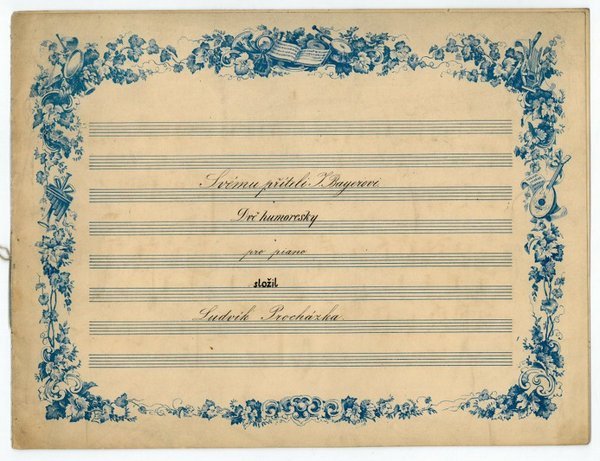 Svému příteli J. Bayerovi.
Dvě humoresky
pro piano
složil
Ludvík Procházka.